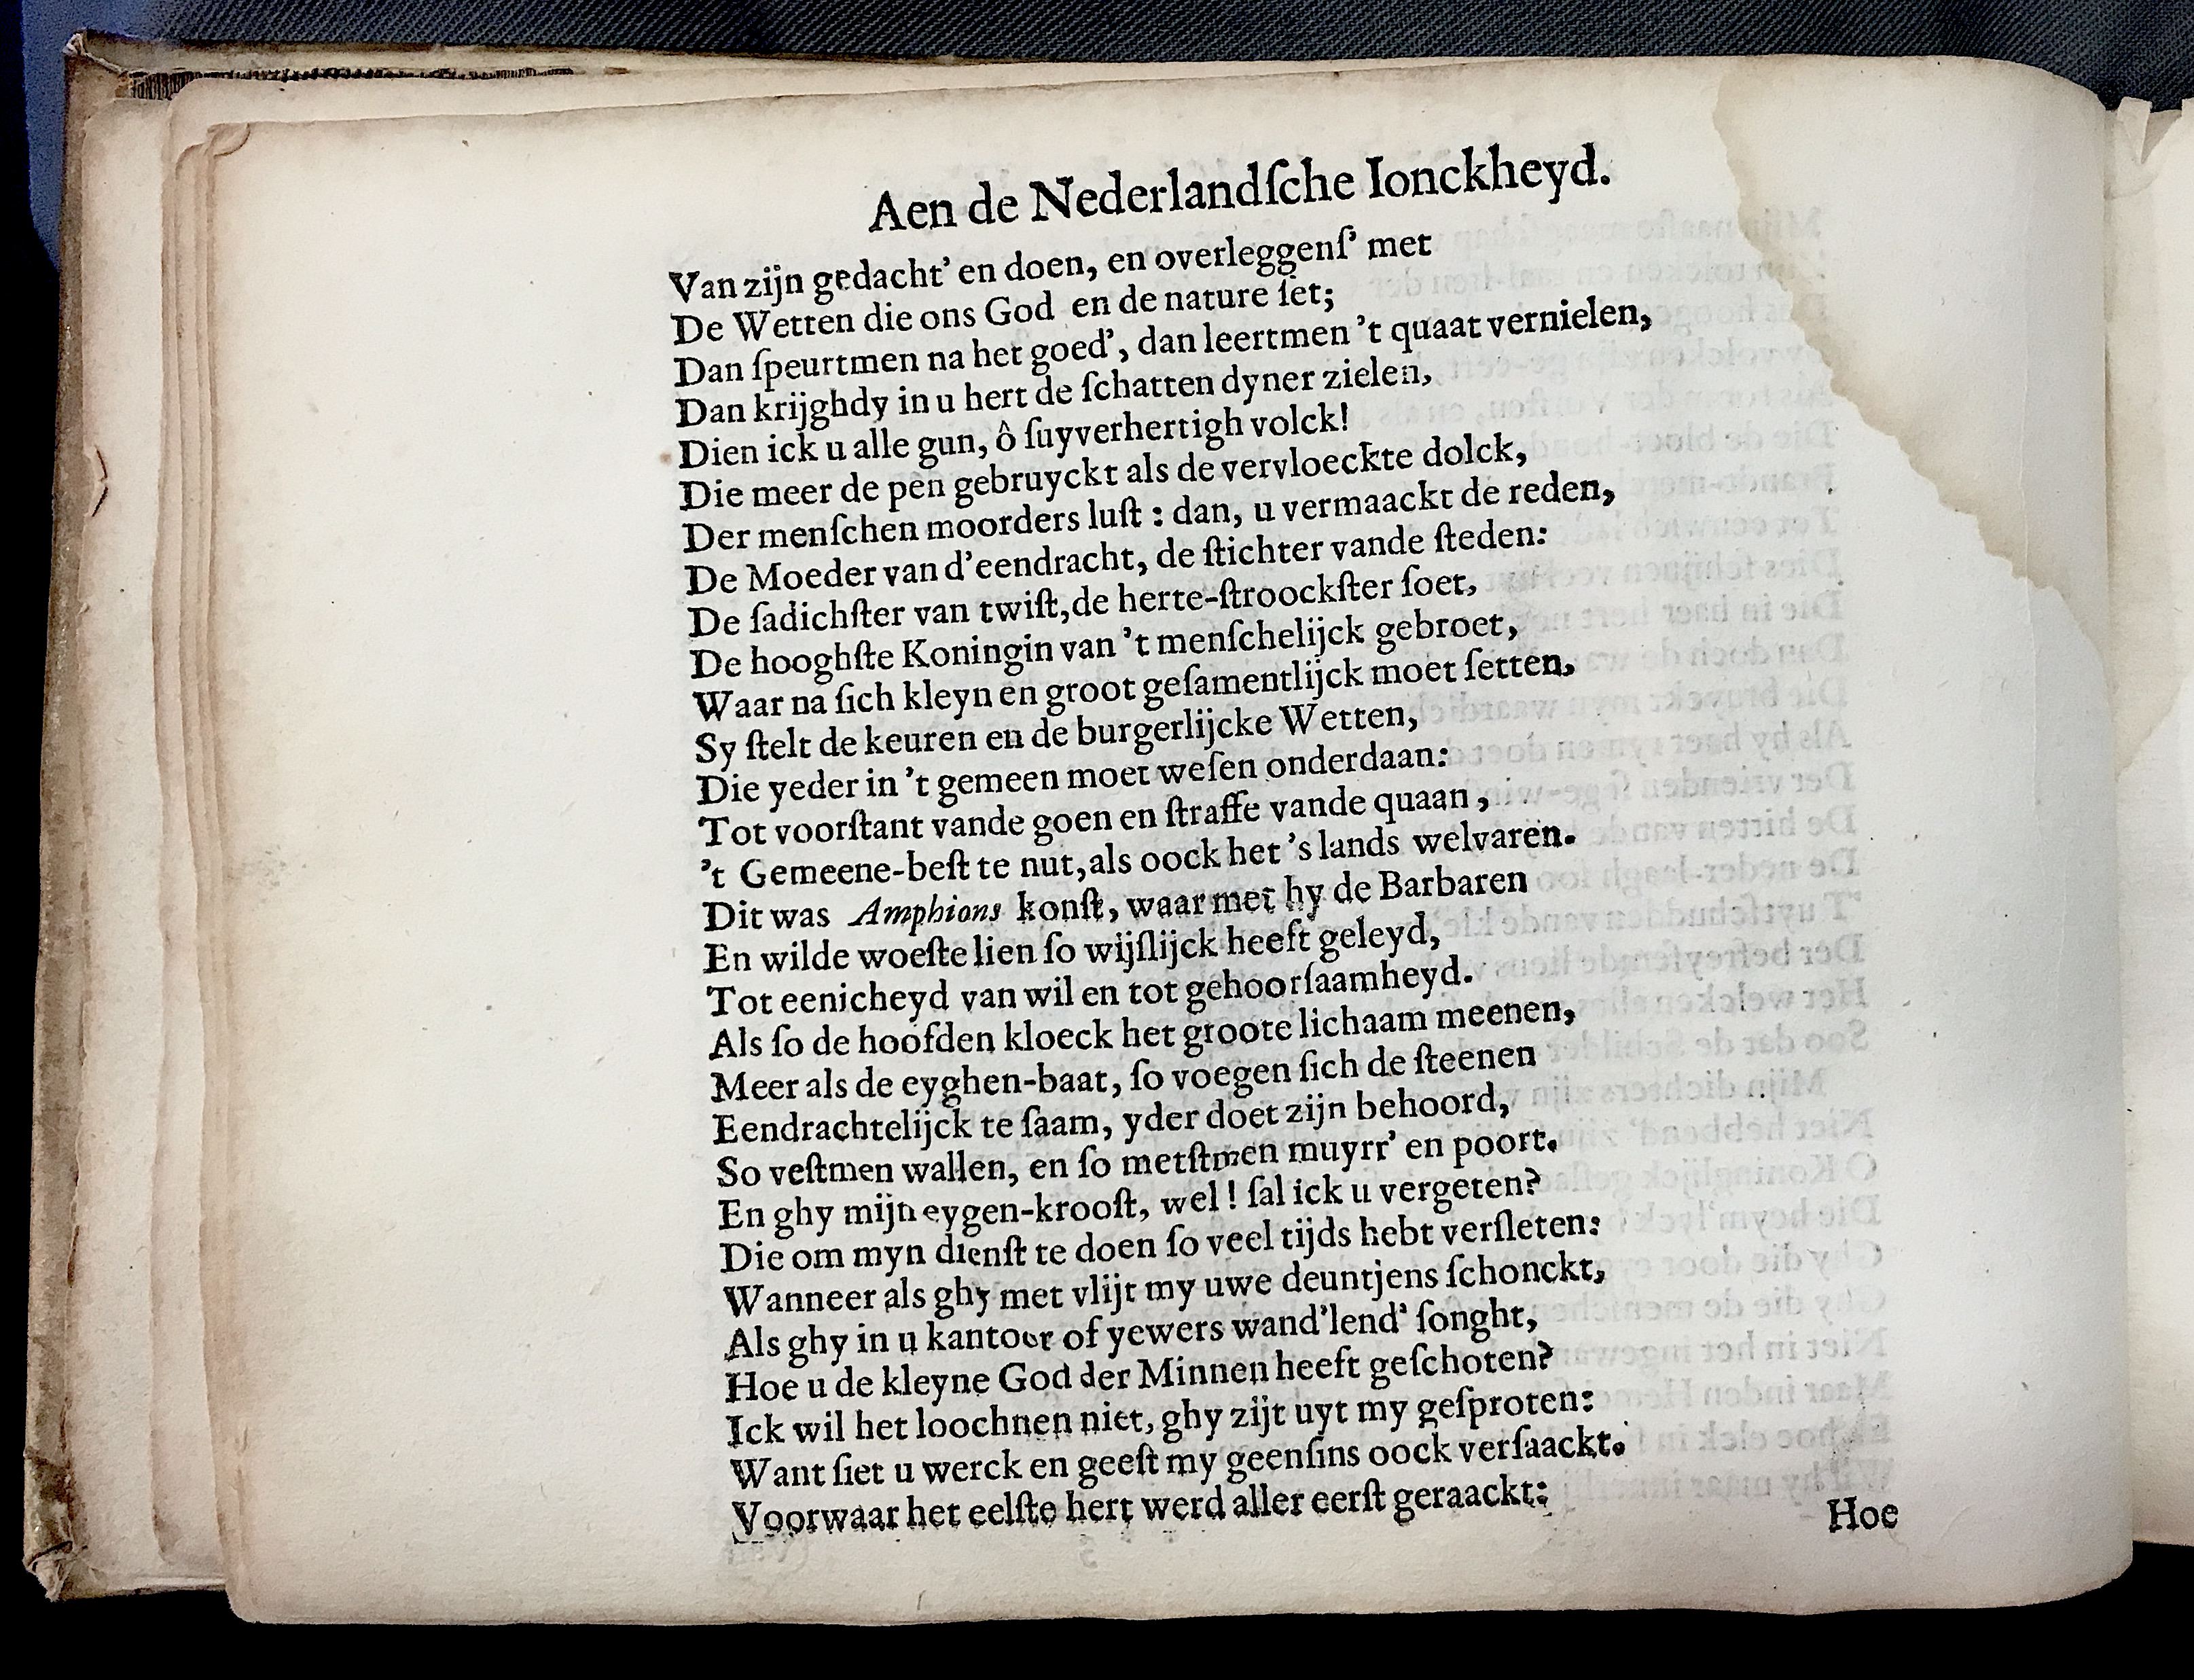 Aen de Nederlandſche Ionckheyd.
Van zijn gedacht' en doen, en overleggenſ' met
De Wetten die ons God en de nature ſet;
Dan ſpeurtmen na het goed', dan leertmen 't quaat vernielen,
Dan krijghdy in u hert de ſchatten dyner zielen,
Dien ick u alle gun, ô ſuyverhertigh volck!
Die meer de pen gebruyckt als de vervloeckte dolck,
Der menſchen moorders luſt : dan, u vermaackt de reden,
De Moeder van d'eendracht, de ſtichter vande ſteden:
De ſadichſter van twiſt, de herte-ſtroockſter ſoet,
De hooghſte Koningin van 't menſchelijck gebroet,
Waar na ſich kleyn en groot geſamentlijck moet ſetten,
Sy ſtelt de keuren en de burgerlijcke Wetten,
Die yeder in 't gemeen moet weſen onderdaan:
Tot voorſtant vande goen en ſtraffe vande quaan,
't Gemeene-beſt te nut, als oock het 's lands welvaren.
Dit was Amphions konſt, waar met hy de Barbaren
En wilde woeſte lien ſo wijſlijck heeft geleyd,
Tot eenicheyd van wil en tot gehoorſaamheyd.
Als ſo de hoofden kloeck het groote lichaam meenen,
Meer als de eyghen-baat, ſo voegen ſich de ſteenen
Eendrachtelijck te ſaam, yder doet zijn behoord,
So veſtmen wallen, en ſo metſtmen muyrr' en poort.
En ghy mijn eygen-krooſt, wel! ſal ick u vergeten?
Die om myn dienſt te doen ſo veel tijds hebt verſleten:
Wanneer als ghy met vlijt my uwe deuntjens ſchonckt,
Als ghy in u kantoor of yewers wand'lend' ſonght,
Hoe u de kleyne God der Minnen heeft geſchoten?
Ick wil het loochnen niet, ghy zijt uyt my geſproten:
Want ſiet u werck en geeſt my geenſins oock verſaackt.
Voorwaar het eelſte hert werd aller eerſt geraackt:
Hoe